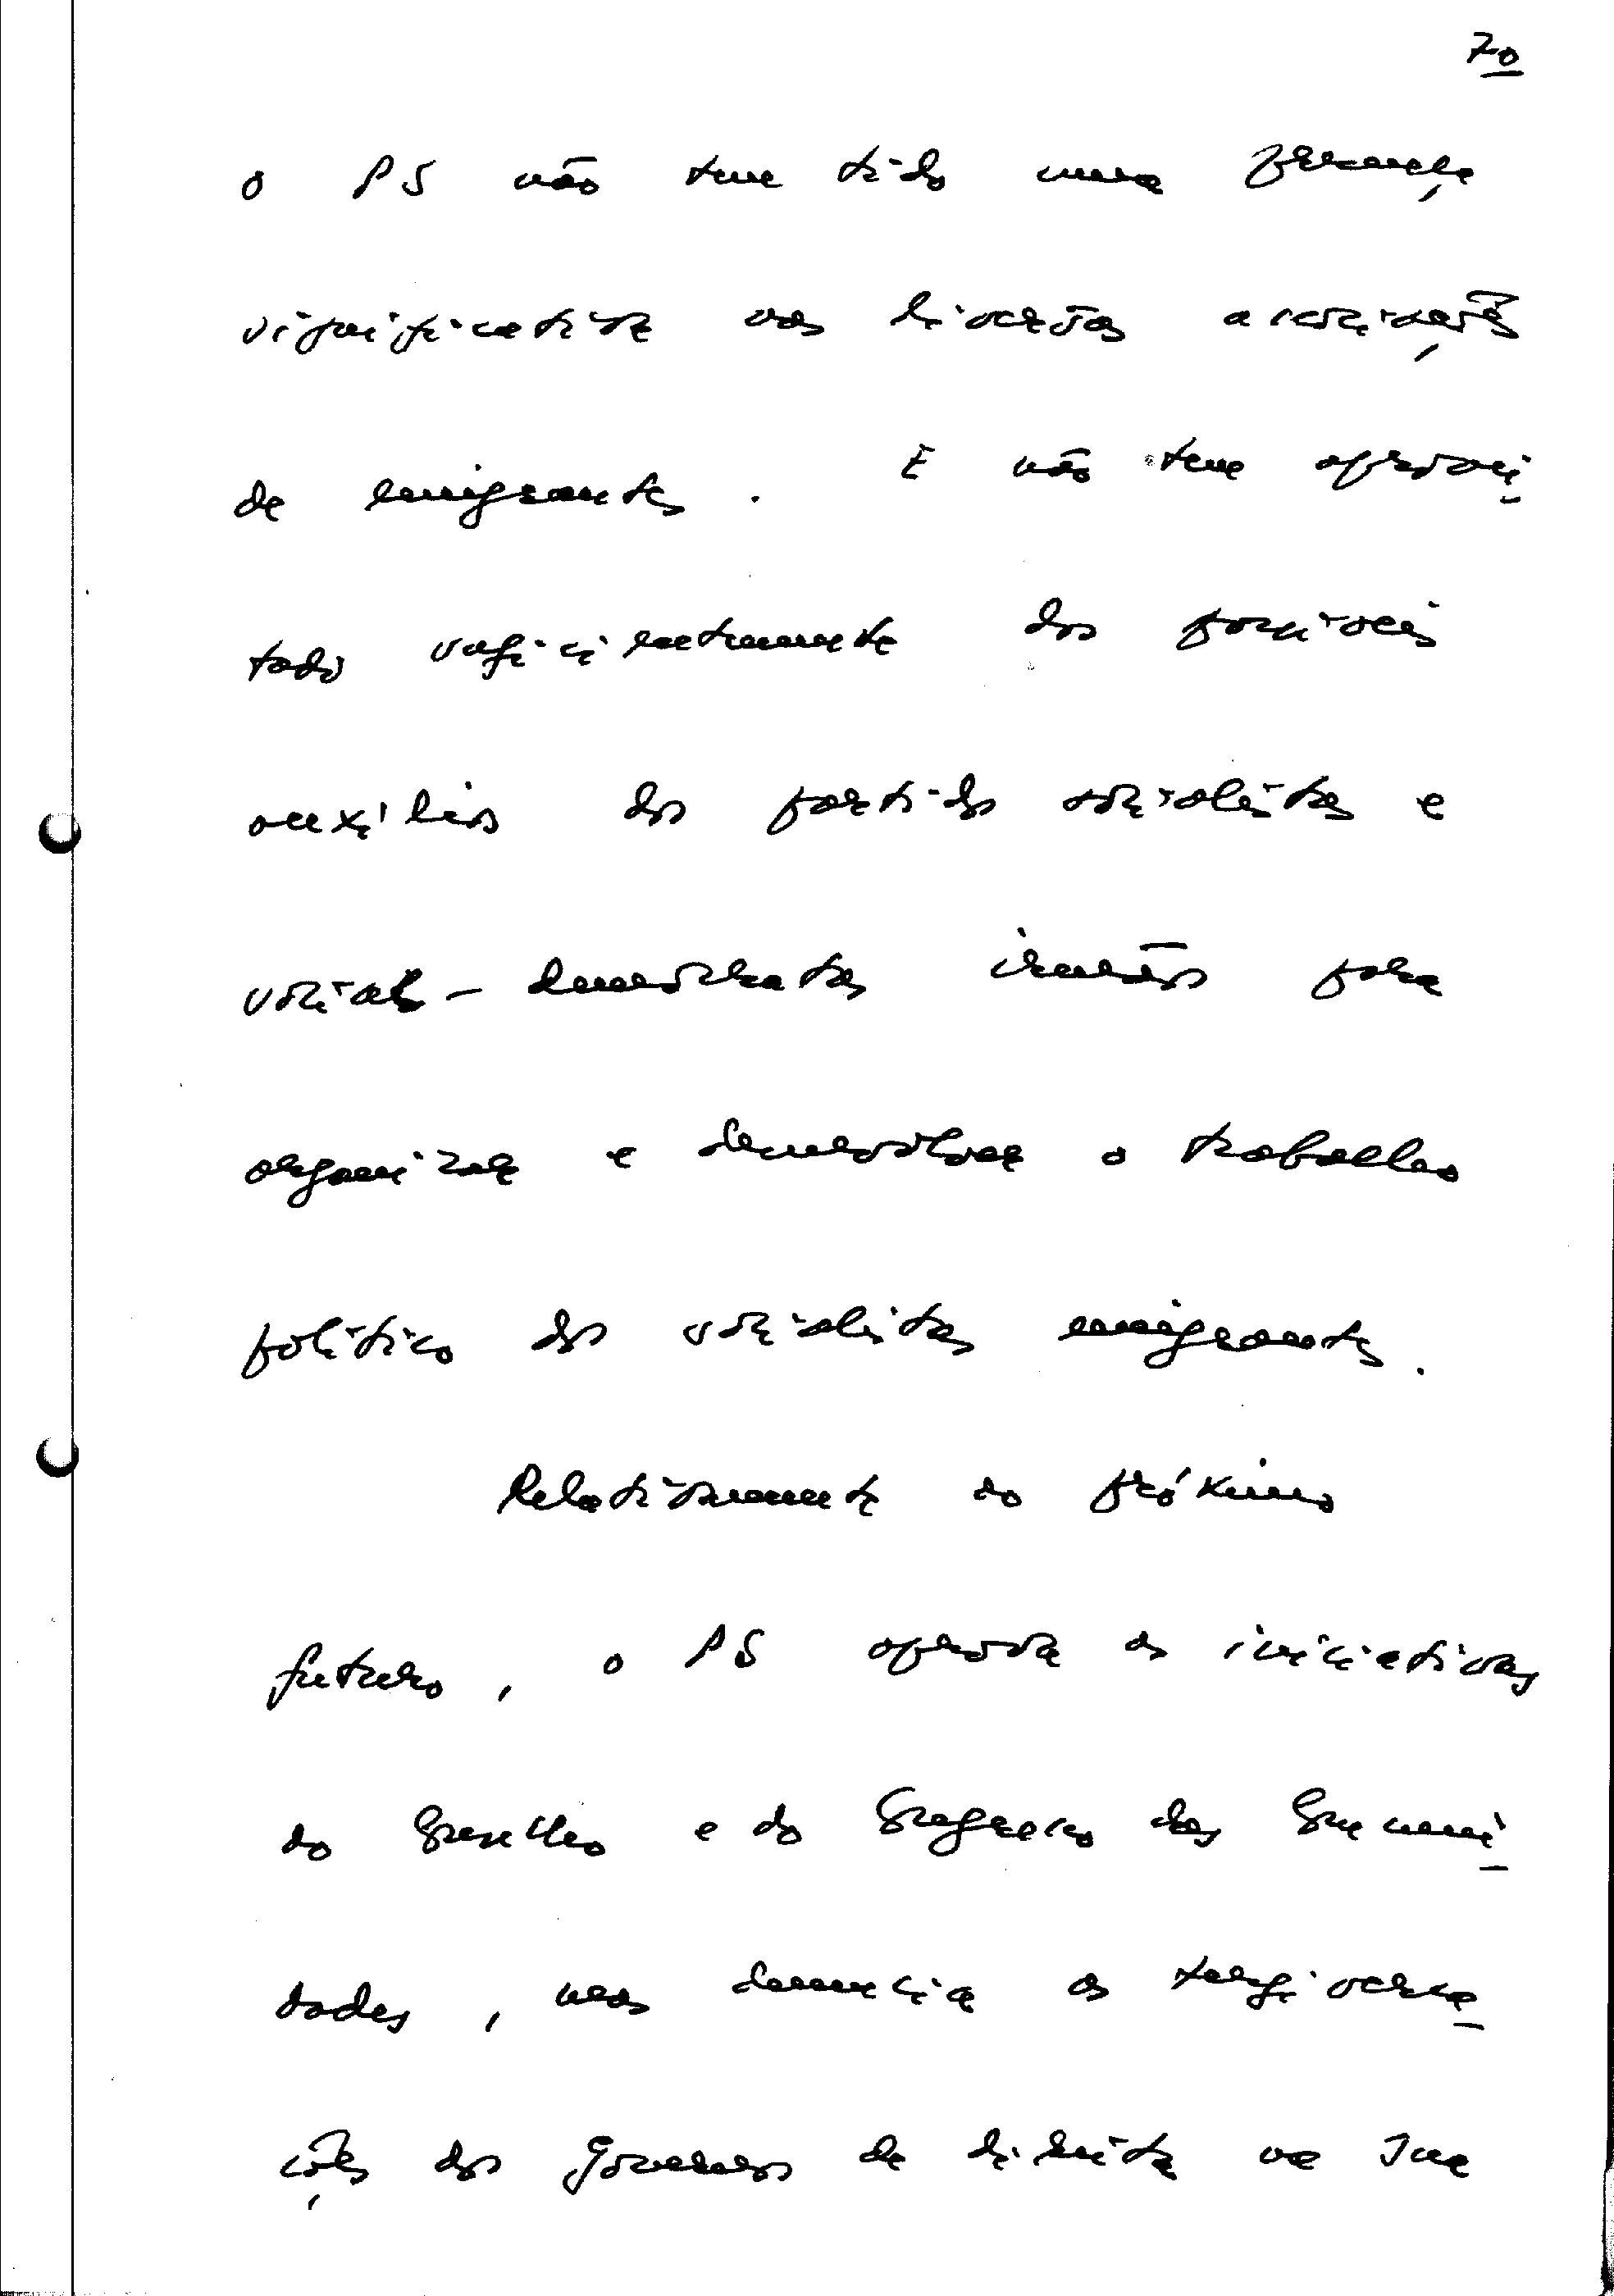 70
o PS não tem tido uma presença
significativa nas diversas associações
de emigrantes. E não tem aprovei
tado suficientemente dos possíveis
auxílios dos partidos socialistas e
sociais-democratas irmãos para
organizar e desenvolver o trabalho
político dos socialistas emigrantes.
Relativamente ao próximo
futuro, o PS aprova as iniciativas
do Conselho e do Congresso das Comuni
dades, mas denuncia as tergiversa
ções dos Governos de direita na sua